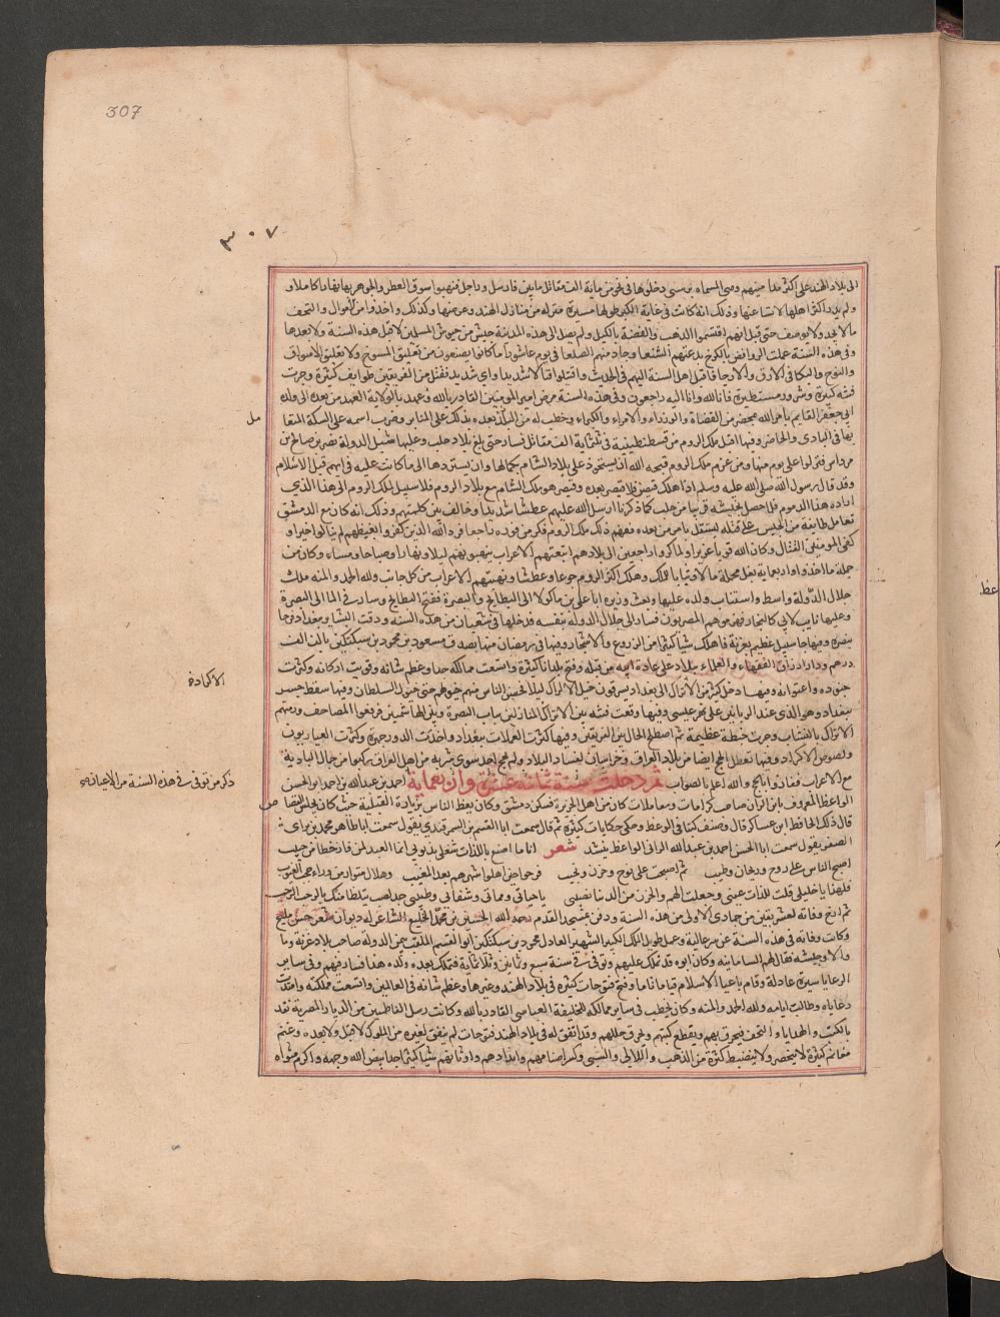 307
٣٠٧
الى بلاد الهند على اكثر مداينهم وهى السماه نرسى دخلوها فى نحو من ماية الف مقاتل مابين فارس وراجل فنهبوا سوق العطر والجوهر بها نهارا كاملا و
ولم يدر اكثر اهلها لاتساعها وذلك انه كانت فى غاية الكبر طولها مسيرة منزله من منازل الهند وعرضها وكذلك واخذوا من الاموال والتحف
ما لا يحد ولا يوصف حتى قيل انهم اقتسموا الذهب والفضة بالكيل ولم يصل الى هذه المدينة جيش من جيوش المسلمين لا قبل هذه السنة ولا بعدها
وفى هذه السنة عملت الروافض بالكرخ بدعتهم الشنعا وحادمنهم الصلعا فى يوم عاشورا ما كانوا يصنعون من تعليق المسوح وتعليق الاسواق
والنوح والبكا فى الازقة والارجا فاقبل اهل السنة اليهم فى الحديد واقتتلوا قتالا شديدا واى شديد فقتل من الفريقين طوايف كثيرة وجرت
فتنه كبيرة وشرور مستطيرة فانا لله وانا اليه راجعون وفى هذه السنة مرض امير المومنين القادر بالله وعهد بالولاية العهد من بعده الى ولده
ابى جعفر القايم بامر الله بمحضر من القضاة والوزراء والامراء والكبراء وخطب له من
مل
بها فى البادى والحاضر وفيها اقبل ملك الروم من قسطنطينية فى ثلثماية الف مقاتل فسار حتى بلغ بلاد حلب وعليها شبل الدولة نصر بن صالح بن
مرداس فنزلوا على يوم منها ومن عزم ملك الروم قبحه الله ان يستحوذ على بلاد الشام بكمالها وان يستردها الى ما كانت عليه فى ايديهم قبل الاسلام
وقد قال رسول الله صلى الله عليه وسلم اذا هلك قيصر فلا قيصر بعده وقيصر هو ملك الشام مع بلاد الروم فلا سبيل لملك الروم الى هذا الذى
اراده هذا المذموم فلما حصل بجيشه قريبا من حلب كما ذكرنا ارسل الله عليهم عطشا شديدا وخالف بين كلمتهم وذلك انه كان مع الدمشق
تعامل طايفة من الجيش على قتله ليستقل بامر من بعده ففهم ذلك ملك الروم فكر من فوره راجعا فرد الله الذين كفروا بغيظهم لم ينالوا خيرا و
كفى المومنين القتال وكان الله قويا عزيزا ولما كروا راجعين الى بلادهم اتبعتهم الاعراب ينهبونهم ليلا ونهارا وصباحا ومساء وكان من
جملة ما اخذوا اربعماية بغل محملة مالا وثيابا للملك وهلك اكثر الروم جوعا وعطشا ونهبتهم الاعراب من كل جانب ولله الحمد والمنه ملك
جلال الدولة واسط واستناب ولده عليها وبعث وزيره ابا على بن ماكولا الى البطايح والبصرة ففتح البطايح وسار فى الماء الى البصرة
وعليها نايب لابى كاليجار فهزموهم البصريون فسار الى جلال الدوله بنفسه فدخلها فى شعبان من هذه السنه
وفيها جا سيل عظيم بغزنة فاهلك شيئا كثيرا من الزروع والاشجار وفيها فى رمضان منها تصدق مسعود بن محمود بن سبكتكين بالف الف
درهم وادار ارزاق الفقهاء والعلماء ببلاده على عادة ابيه من قبله وفتح بلدانا كثيرة واتسعت ممالكه جدا وعظم شانه وقويت اركانه وكثرت
الاكراد
جنوده واعوانه وفيها دخل كثير من الاكراد الى بغداد يسرقون خيل الاتراك ليلا فحصن الناس منهم خيولهم حتى خيول السلطان وفيها سقط جسر
ببغداد وهو الذى عند الزياتين على نهر عيسى وفيها وقعت فتنه بين الاتراك النازلين بباب البصرة وبنى الهاشميين فرفعوا المصاحف ورمتهم
الاتراك بالنشاب وجرت خبطة عظيمة ثم اصطلح الحال بين الفريقين وفيها كثرت العملات ببغداد واخذت الدور جهرة وكثرت العيارون
ولصوص الاكراد وفيها تعطل الحج ايضا من بلاد العراق وخراسان لفساد البلاد ولم يحج احد سوى شرذمة من اهل العراق ركبوا من جمال البادية
مع الاعراب ففازوا بالحج والله اعلم بالصواب ثم دخلت سنة ثمانه عشرة واربعماية احمد بن عبد الله بن احمد ابو الحسن
ذكر من توفى فى هذه السنة من الاعيان
الواعظ المعروف بابن الران صاحب كرامات ومعاملات كان من اهل الجزيرة فسكن دمشق وكان يعظ الناس بزيادة القبلية حيث كان يجلس القصاص
قال ذلك الحافظ ابن عساكر قال وصنف كتبا فى الوعظ وحكى حكايات كثيرة ثم قال سمعت ابا القسم بن السمرقندى يقول سمعت ابا طاهر محمد بن
الصقر يقول سمعت ابا الحسن احمد بن عبد الله الرانى الواعظ ينشد شعر انا ما اصنع باللذات شغلى بذنوبى انما العيد لمن فاز
اصبح الناس على روح وريحان وطيب ثم اصبحت على نوح وحزن ونحيب فرحوا حين اهلوا شهرهم بعد المغيب وهلال متوار من وراء حجب الغيوب
فلهذا يا خليلى قلت للذات غيبى وجعلت الهم والحزن من الدنيا نصيبى يا حياتى ومماتى وشفائى وطبيبى جد لصب يتلظا منك بالرحب الرحيب
ثم ارخ وفاته لعشر بقين من جمادى الاولى من هذه السنة ودفن بمسجد القدم رحمه الله الحسين بن محمد الخليع الشاعر له ديوان شعر حسن مليح
وكات وفاته فى هذه السنة عن سن عالية وعمر طويل الملك الكبير الشهير العادل محمود بن سبكتكين ابو القسم الملقب يمين الدولة صاحب بلاد غزنة وما
والا وجيشه يقال لهم السامانيه وكان ابوه قد تملك عليهم وتوفى فى سنة سبع وثمانين وثلاثماية فتملك بعده ولده هذا فسار فيهم وفى ساير
الرعايا سيرة عادلة وقام باعبا الاسلام قياما تاما وفتح فتوحات كثيرة فى بلاد الهند وغيرها وعظم شانه فى العالمين واتسعت مملكته وامتدت
رعاياه وطالت ايامه ولله الحمد والمنه وكان يخطب فى ساير ممالكه للخليفة العباسى القادر بالله وكانت رسل الفاطميين من الديار المصرية تفد
بالكتب والهدايا والتحف فيحرق بهم ويقطع كتبهم ويحرق حللهم وقد اتفق له فى بلاد الهند فتوحات لم يتفق لغيره من الملوك لا قبله ولا بعده وغنم
مغانم كثيرة لا تنحصر ولا تنضبط كثرة من الذهب واللالى والسبى وكسر اصنامهم وابدادهم واوثانهم شيا كثيرا جدا بيض الله وجهه واكرم مثواه